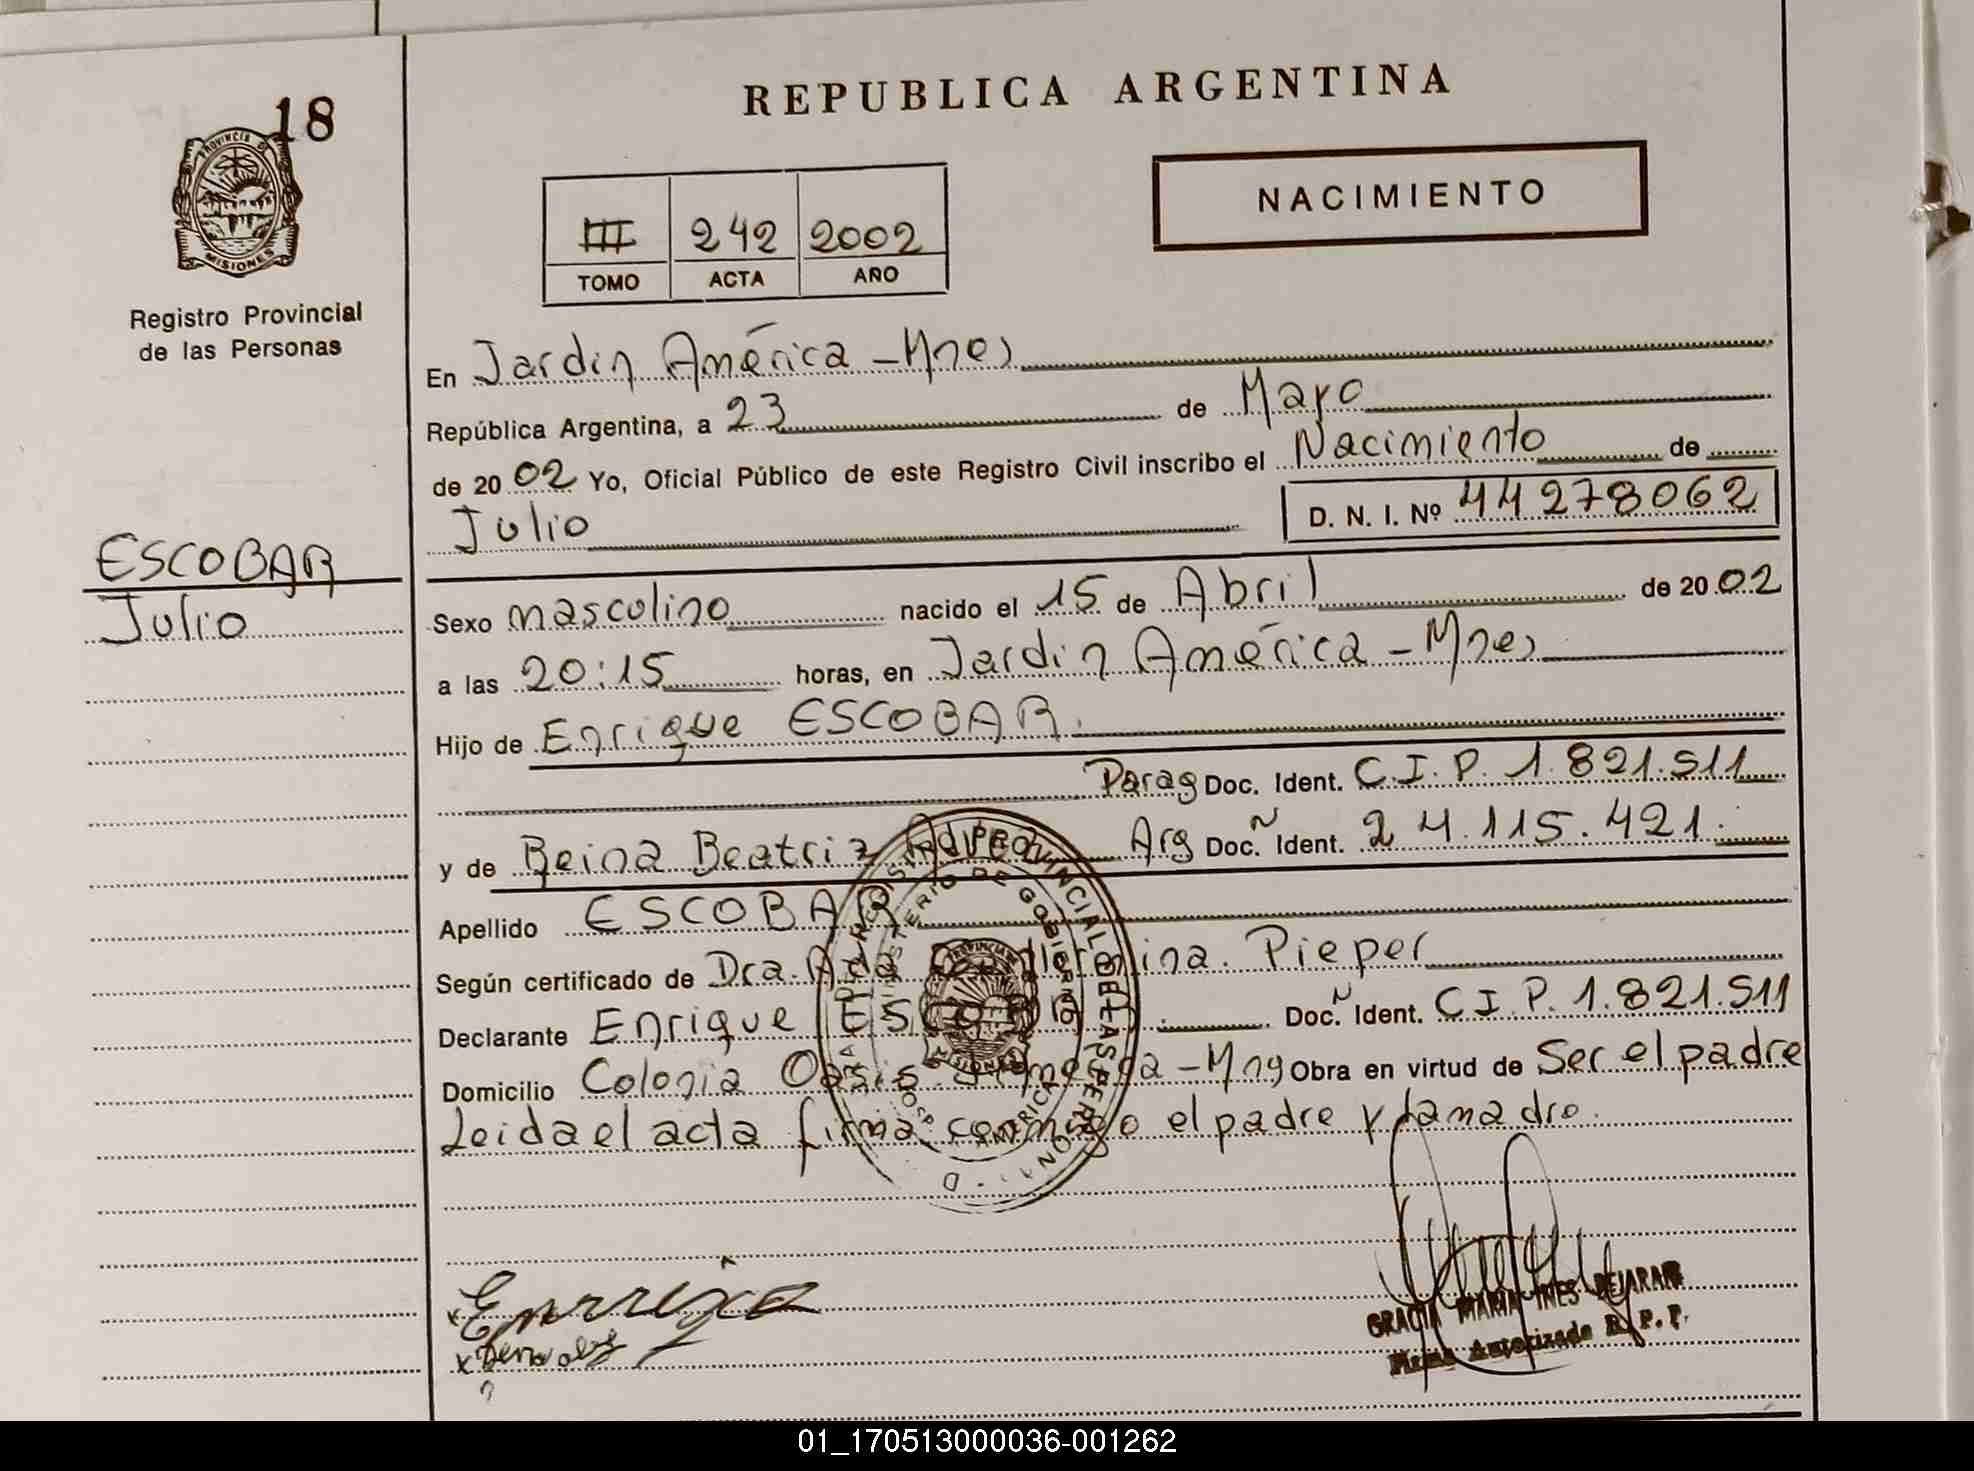 18
PROVINCIA DE
MISIONES
Registro Provincial
de las Personas
ESCOBAR
Julio
REPUBLICA ARGENTINA
NACIMIENTO
III 242 2002
TOMO ACTA AÑO
En Jardin América - Mnes
República Argentina, a 23 de Mayo
de 2002 Yo, Oficial Público de este Registro Civil inscribo el Nacimiento de
Julio D. N. I. Nº 44278062
Sexo masculino nacido el 15 de Abril de 2002
a las 20:15 horas, en Jardin América - Mnes
Hijo de Enrique ESCOBAR.
Parag Doc. Ident. C.I.P. 1.821.511
y de Reina Beatriz Arg Doc. Ident. 24.115.421.
Apellido ESCOBAR
Según certificado de Dra. Ada Pieper
Declarante Enrique ESCOBAR Doc. Ident. C.I.P. 1.821.511
Domicilio Colonia Oasis Obra en virtud de Ser el padre
Leida el acta firma conmigo el padre y la madre.
GRACIA MARIA INES BEJARANO
Firma Autorizada R. P. P.
01_170513000036-001262